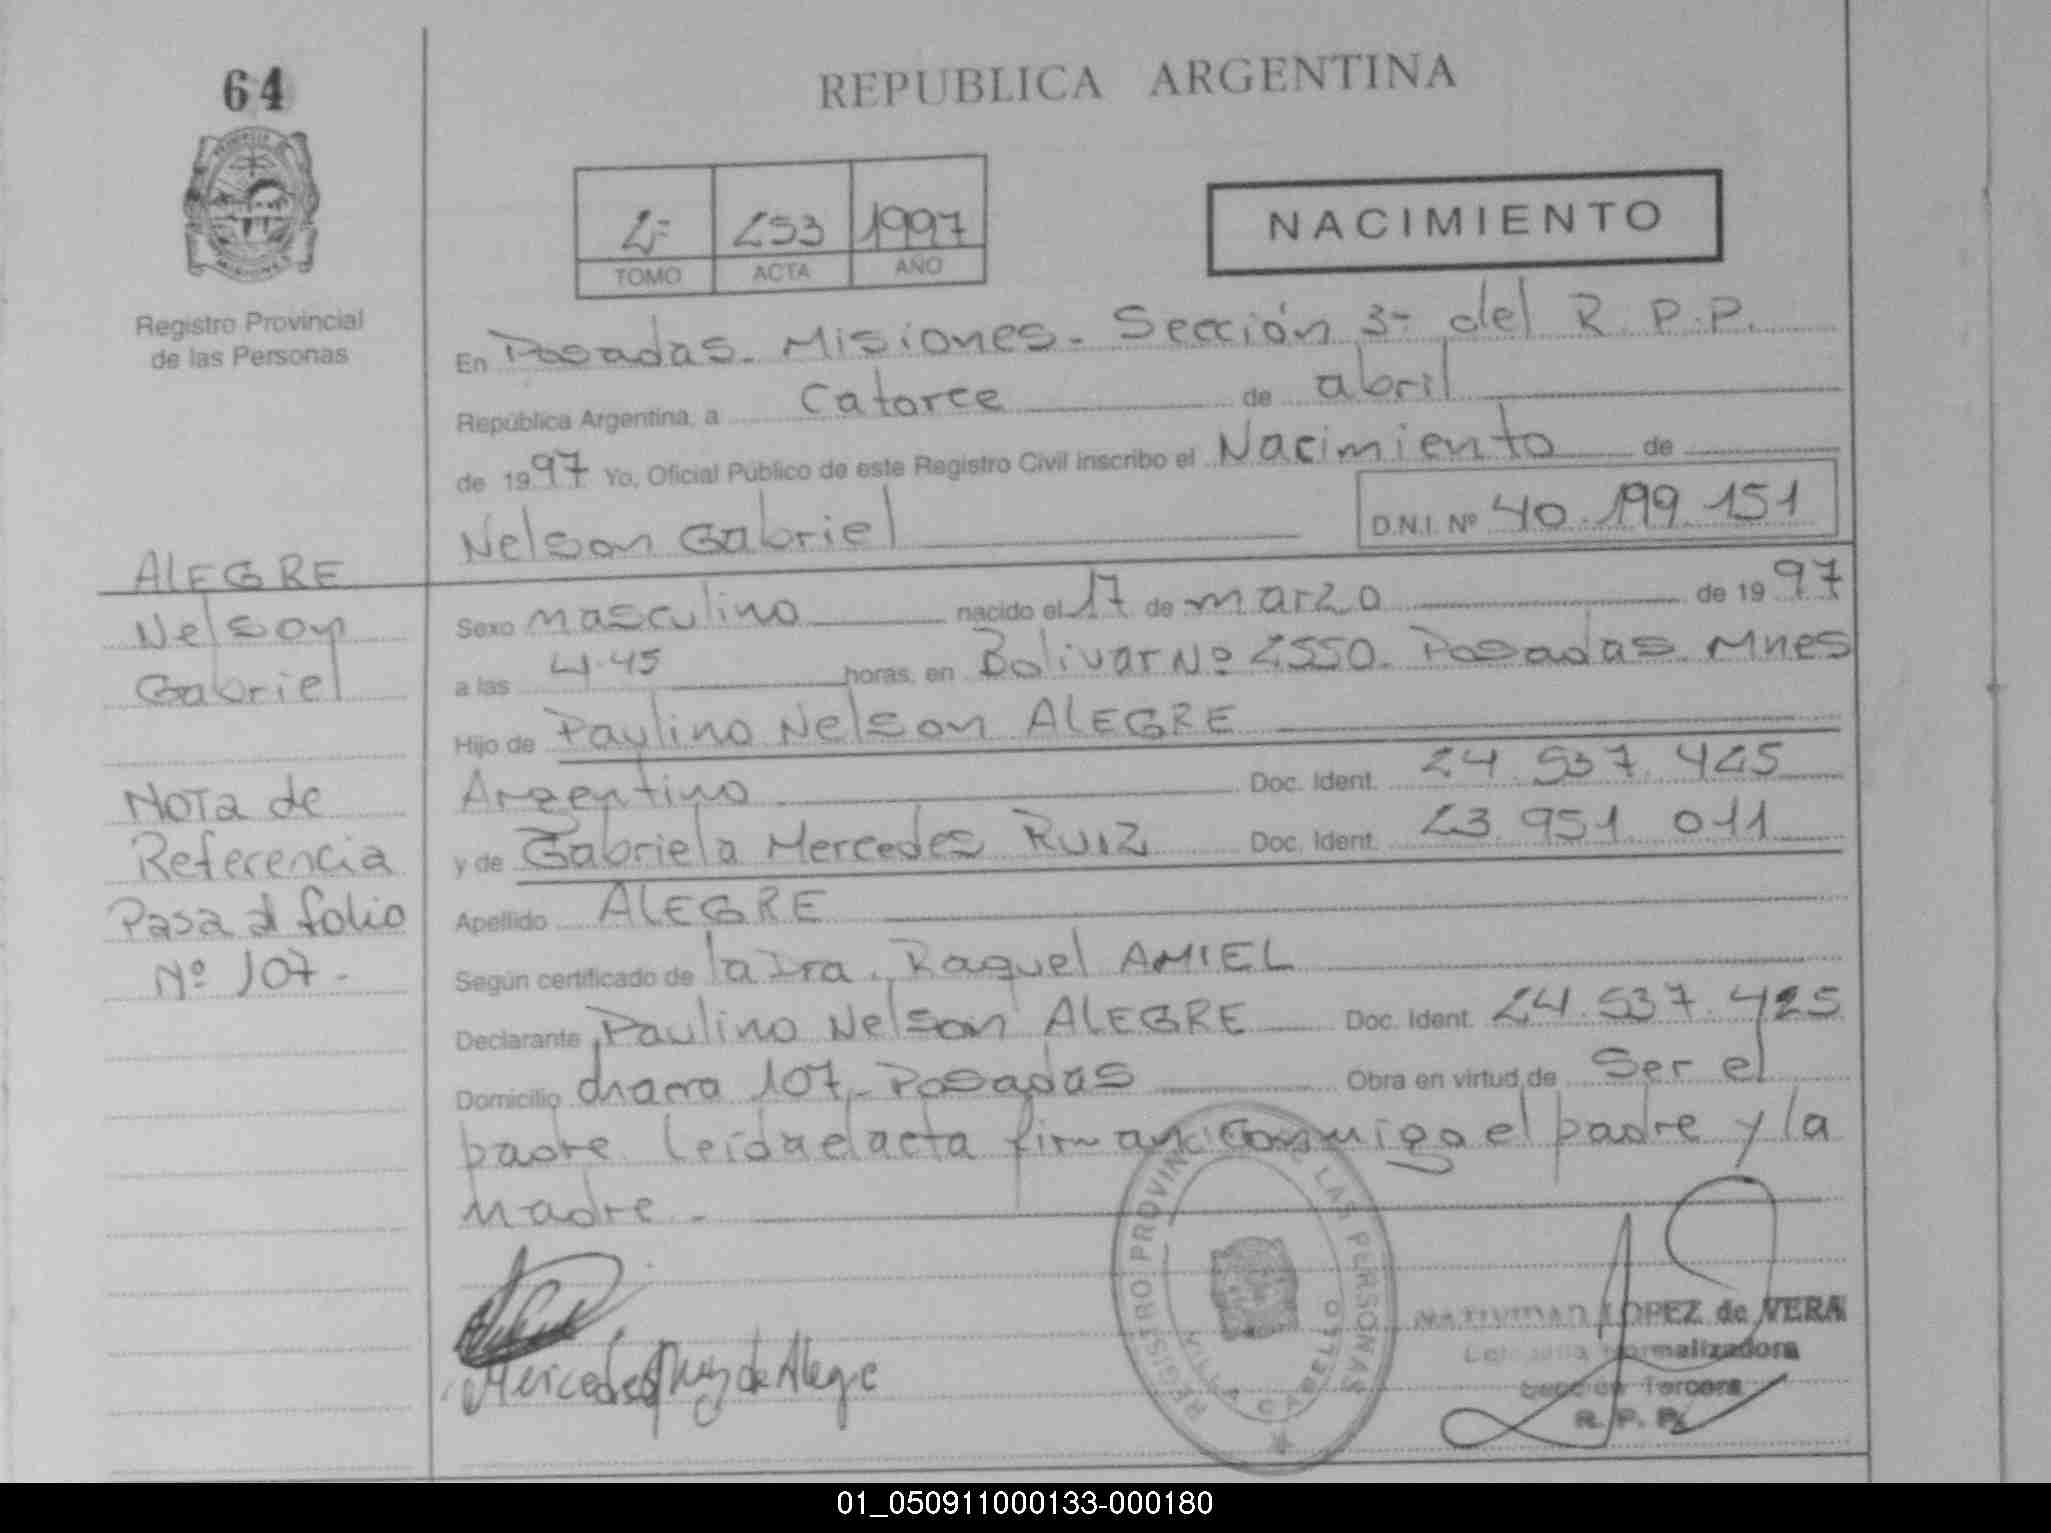 64
REPUBLICA ARGENTINA
2º 253 1997
TOMO ACTA AÑO
NACIMIENTO
PROVINCIA DE MISIONES
Registro Provincial
de las Personas
En Posadas - Misiones - Sección 3ª del R. P. P.
República Argentina, a Catorce de abril
de 1997 Yo, Oficial Público de este Registro Civil inscribo el Nacimiento de
Nelson Gabriel D.N.I. Nº 40.199.151
ALEGRE
Nelson
Gabriel
Nota de
Referencia
Pasa al folio
Nº 107-
Sexo masculino nacido el 17 de marzo de 1997
a las 4.45 horas, en Bolivar Nº 2550. Posadas Mnes
Hijo de Paulino Nelson ALEGRE
Argentino Doc. Ident. 24.537.425
y de Gabriela Mercedes RUIZ Doc. Ident. 23.951.011
Apellido ALEGRE
Según certificado de la Dra. Raquel AMIEL
Declarante Paulino Nelson ALEGRE Doc. Ident. 24.537.425
Domicilio chacra 107 - Posadas Obra en virtud de Ser el
padre. Leída el acta firman conmigo el padre y la
madre -
Mercedes Ruiz de Alegre
REGISTRO PROVINCIAL DE LAS PERSONAS
VILLA CABELLO
NATIVIDAD LOPEZ de VERA
Normalizadora
Sección Tercera
R. P. P.
01_050911000133-000180